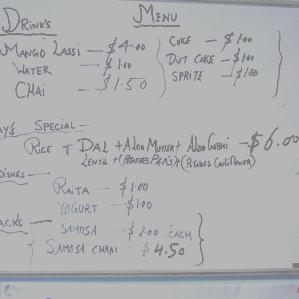 MENU
DRINKS
MANGO LASSI — $4.00
WATER — $1.00
CHAI — $1.50
COKE — $1.00
DIET COKE — $1.00
SPRITE — $1.00
SPECIAL —
RICE + DAL + ALOO MUTTER + ALOO GOBHI — $6.00
LENTIL + (POTATOES PEA'S) + (POTATOES CAULIFLOWER)
DISHES —
RAITA — $1.00
YOGURT — $1.00
SAMOSA — $2.00 EACH
SAMOSA CHAAT — $4.50